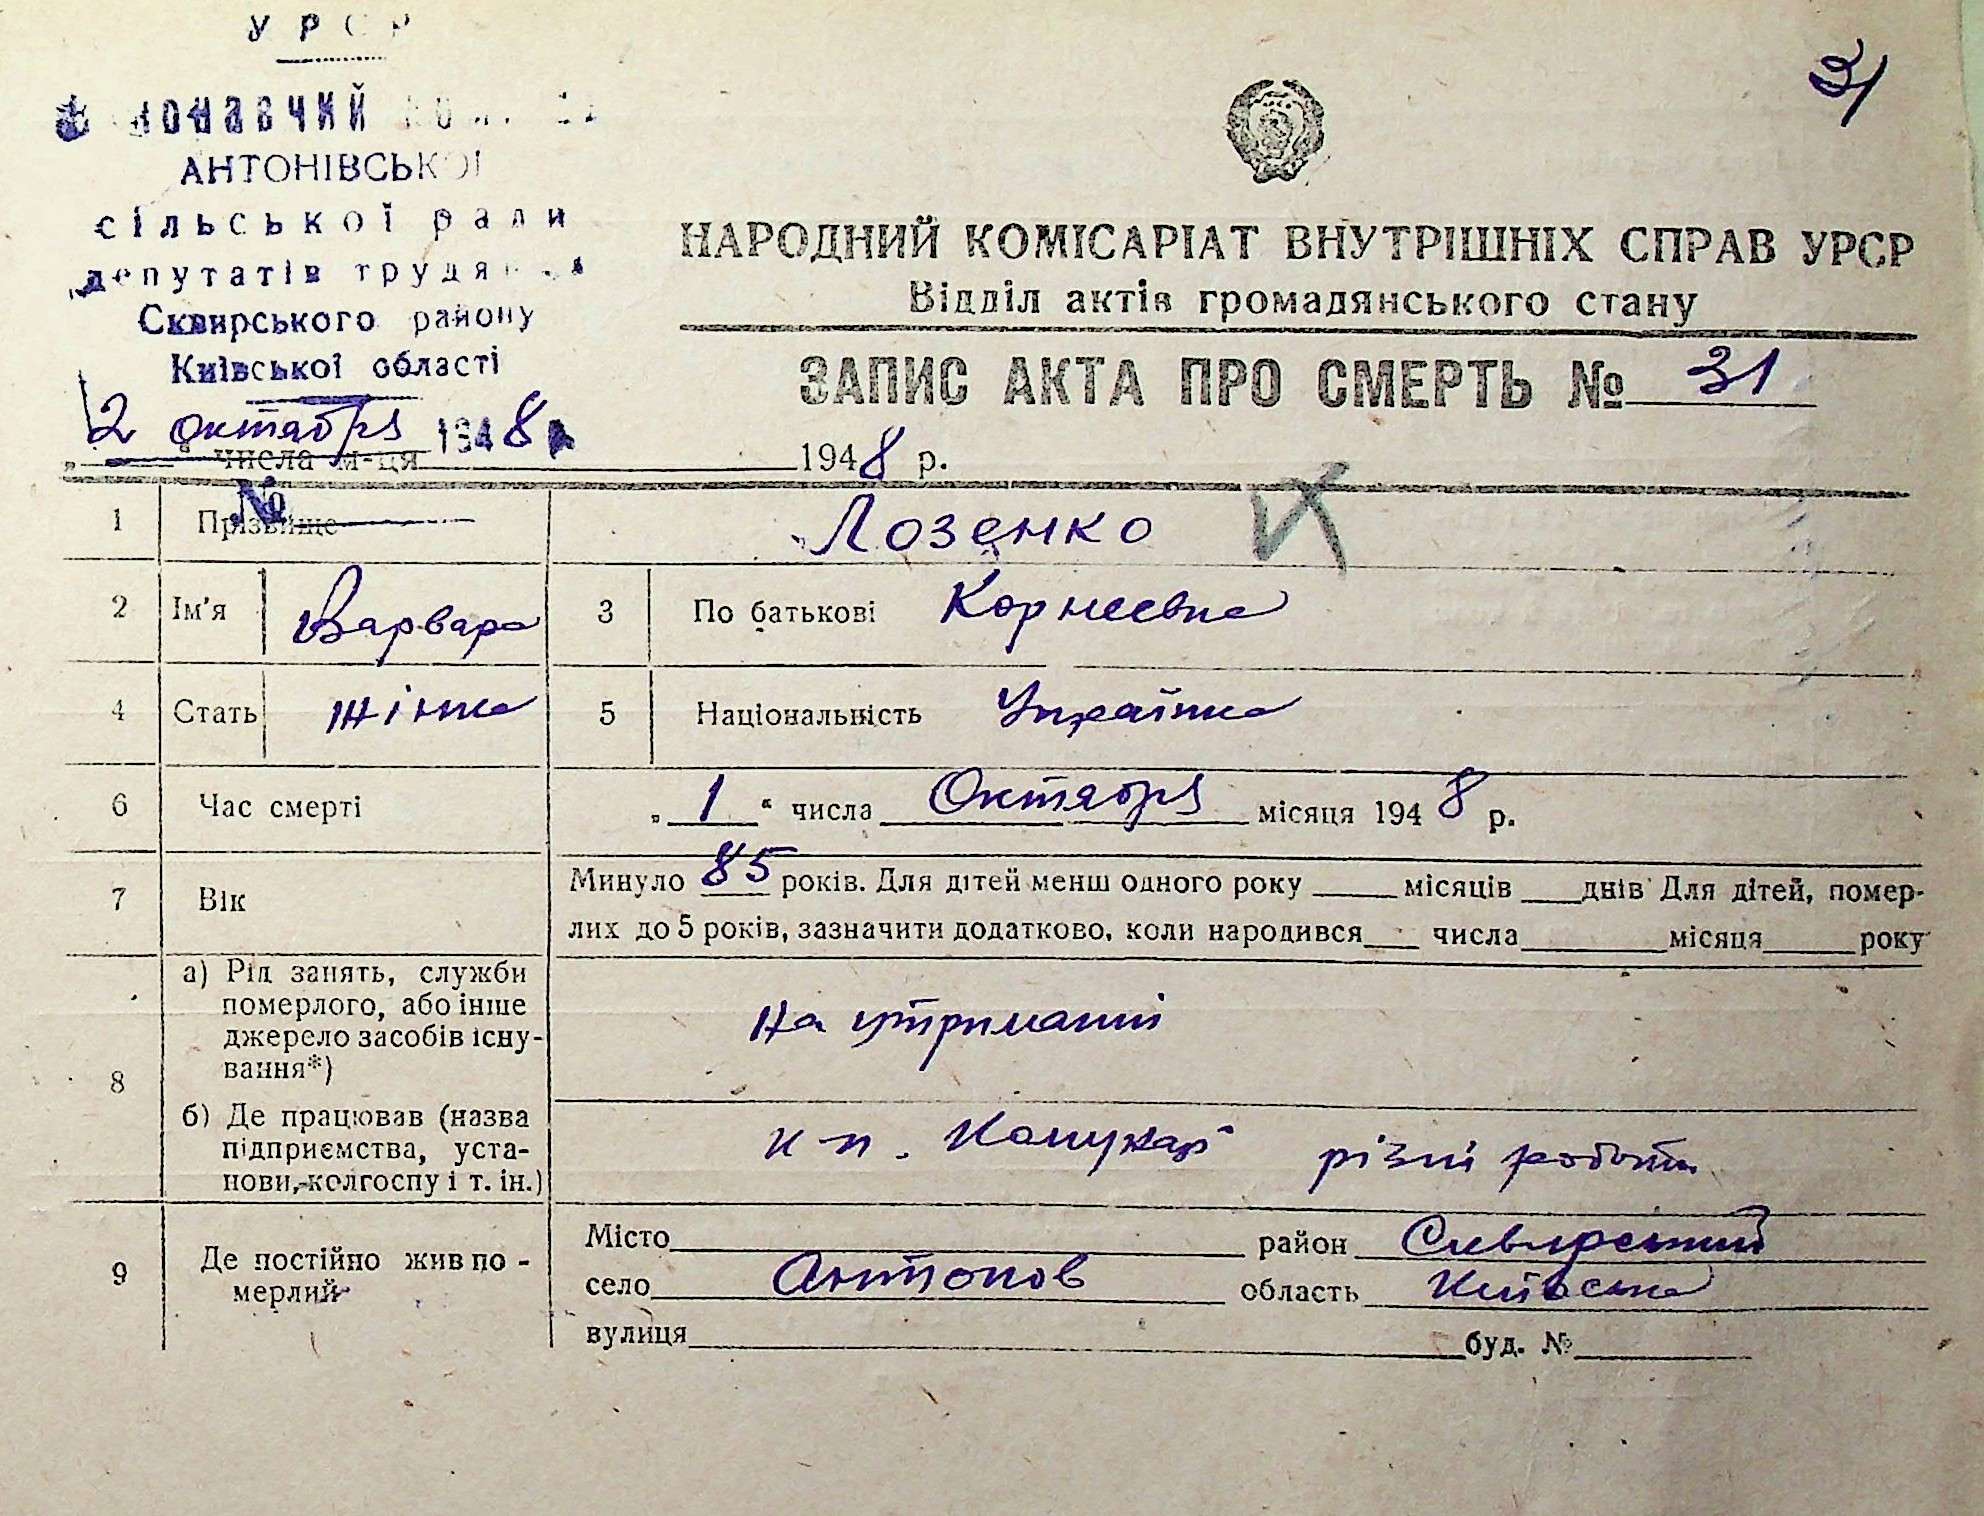 УРСР
31
АНТОНІВСЬКОЇ
сільської ради
депутатів
Сквирського району
Київської області
2 октября 1948
№
НАРОДНИЙ КОМІСАРІАТ ВНУТРІШНІХ СПРАВ УРСР
Відділ актів громадянського стану
ЗАПИС АКТА ПРО СМЕРТЬ № 31
„ числа м-ця 1948 р.
1 Прізвище Лозенко
2 Ім'я Варвара 3 По батькові Корнеевна
4 Стать жінка 5 Національність Українка
6 Час смерті „1“ числа Октября місяця 1948 р.
7 Вік Минуло 85 років. Для дітей менш одного року місяців днів Для дітей, помер-
лих до 5 років, зазначити додатково, коли народився числа місяця року
8 а) Рід занять, служби
померлого, або інше
джерело засобів існу-
вання*)
на утриманні
б) Де працював (назва
підприємства, уста-
нови, колгоспу і т. ін.)
к-п. різні роботи
9 Де постійно жив по-
мерлий
Місто район Сквирський
село Антонов область Київська
вулиця буд. №